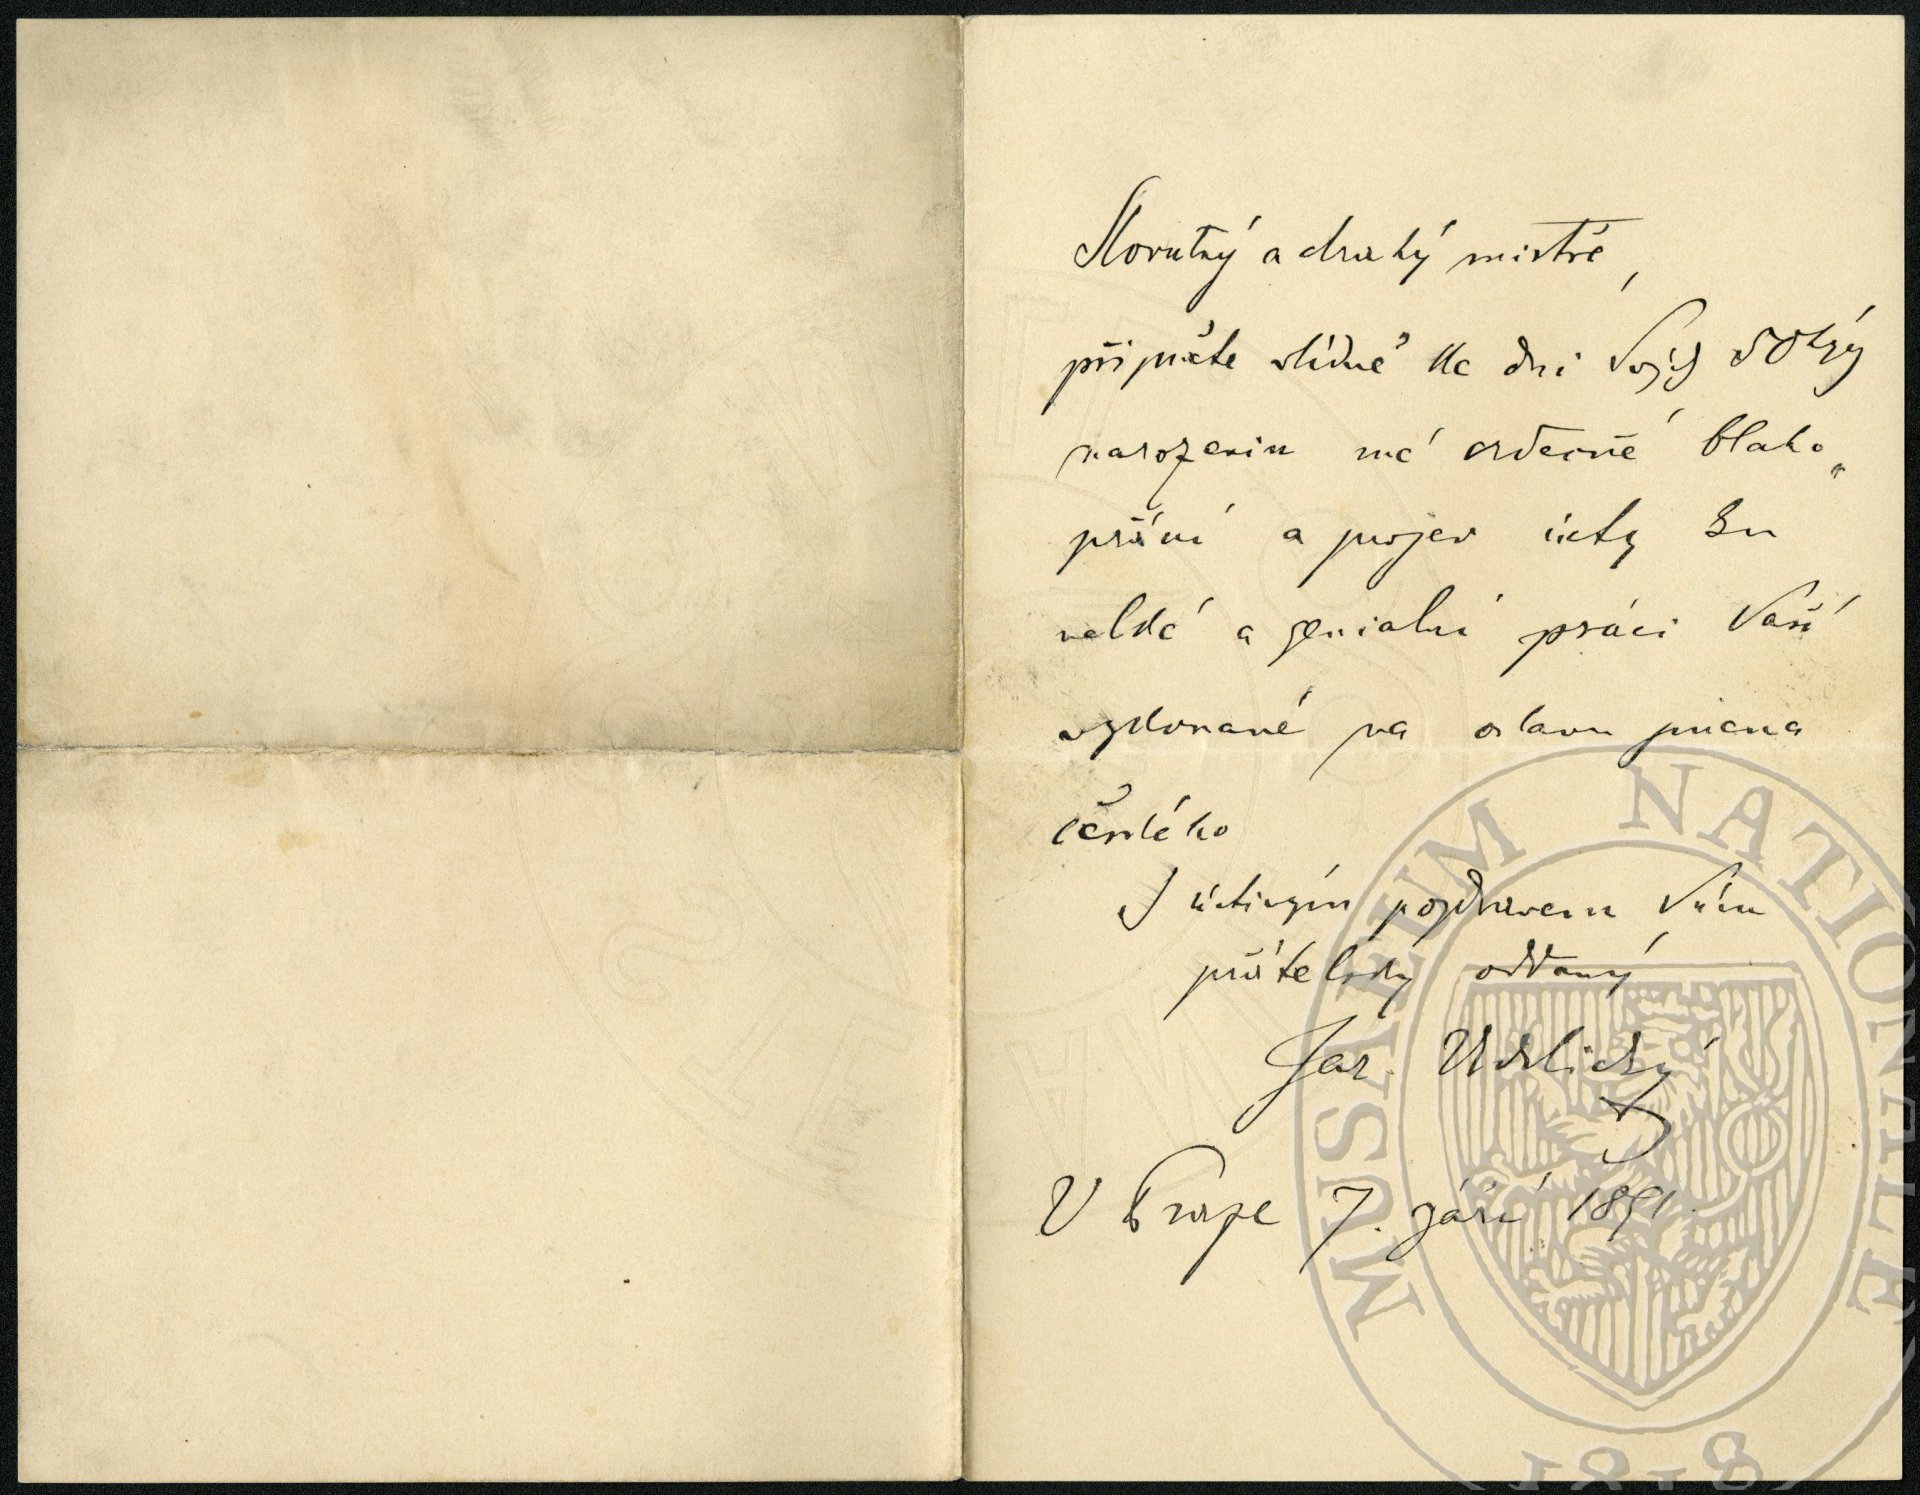 Slovutný a drahý mistře,
přijměte vlídně ke dni Svých 50tých
narozenin mé srdečné blaho„
přání a projev úcty ku
velké a genialní práci Vaší
vykonané na slavu jména
českého
S úctivým pozdravem Vám
přátelsky oddaný
Jar. Vrchlický
V Praze 7. září 1891.
MUSAEUM NATIONALE
1818